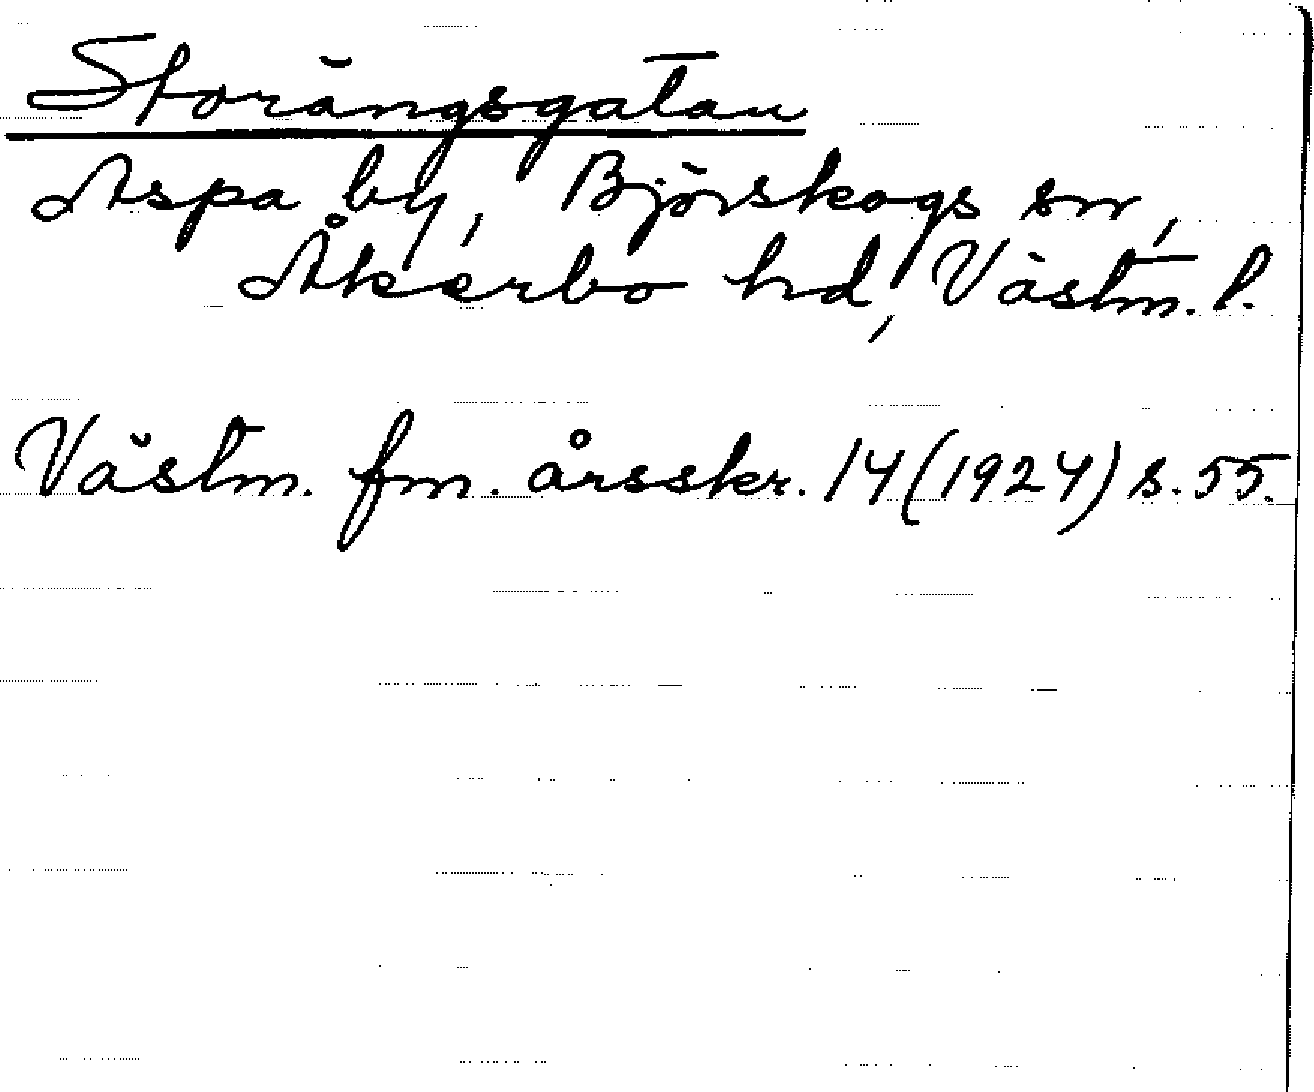 Storängsgatan
Aspa by, Björskogs sn,
Åkerbo hd, Västm. l.
Västm. fm. årsskr. 14 (1924) s. 55.